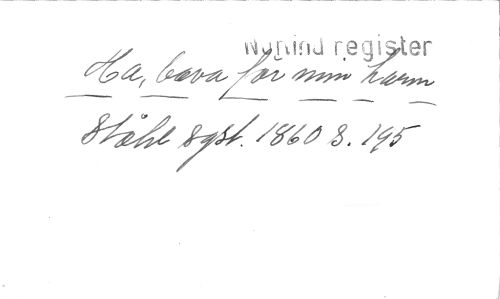 Nyrkind register
Ha, bava för min harm
Ståhl sgst. 1860 S. 195